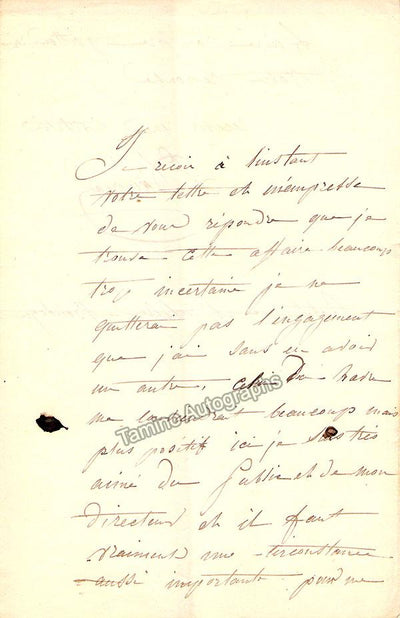 Je reçoi à l'instant
votre lettre et m'empresse
de vous répondre que je
trouve cette affaire beaucoup
trop incertaine je ne
quitterai pas l'engagement
que j'ai sans en avoir
un autre, du Havre
me beaucoup mais
plus positif ici je suis très
aimé du Public et de mon
directeur et il faut
vraiment une circonstance
aussi importante pour me
Tamino Autographs